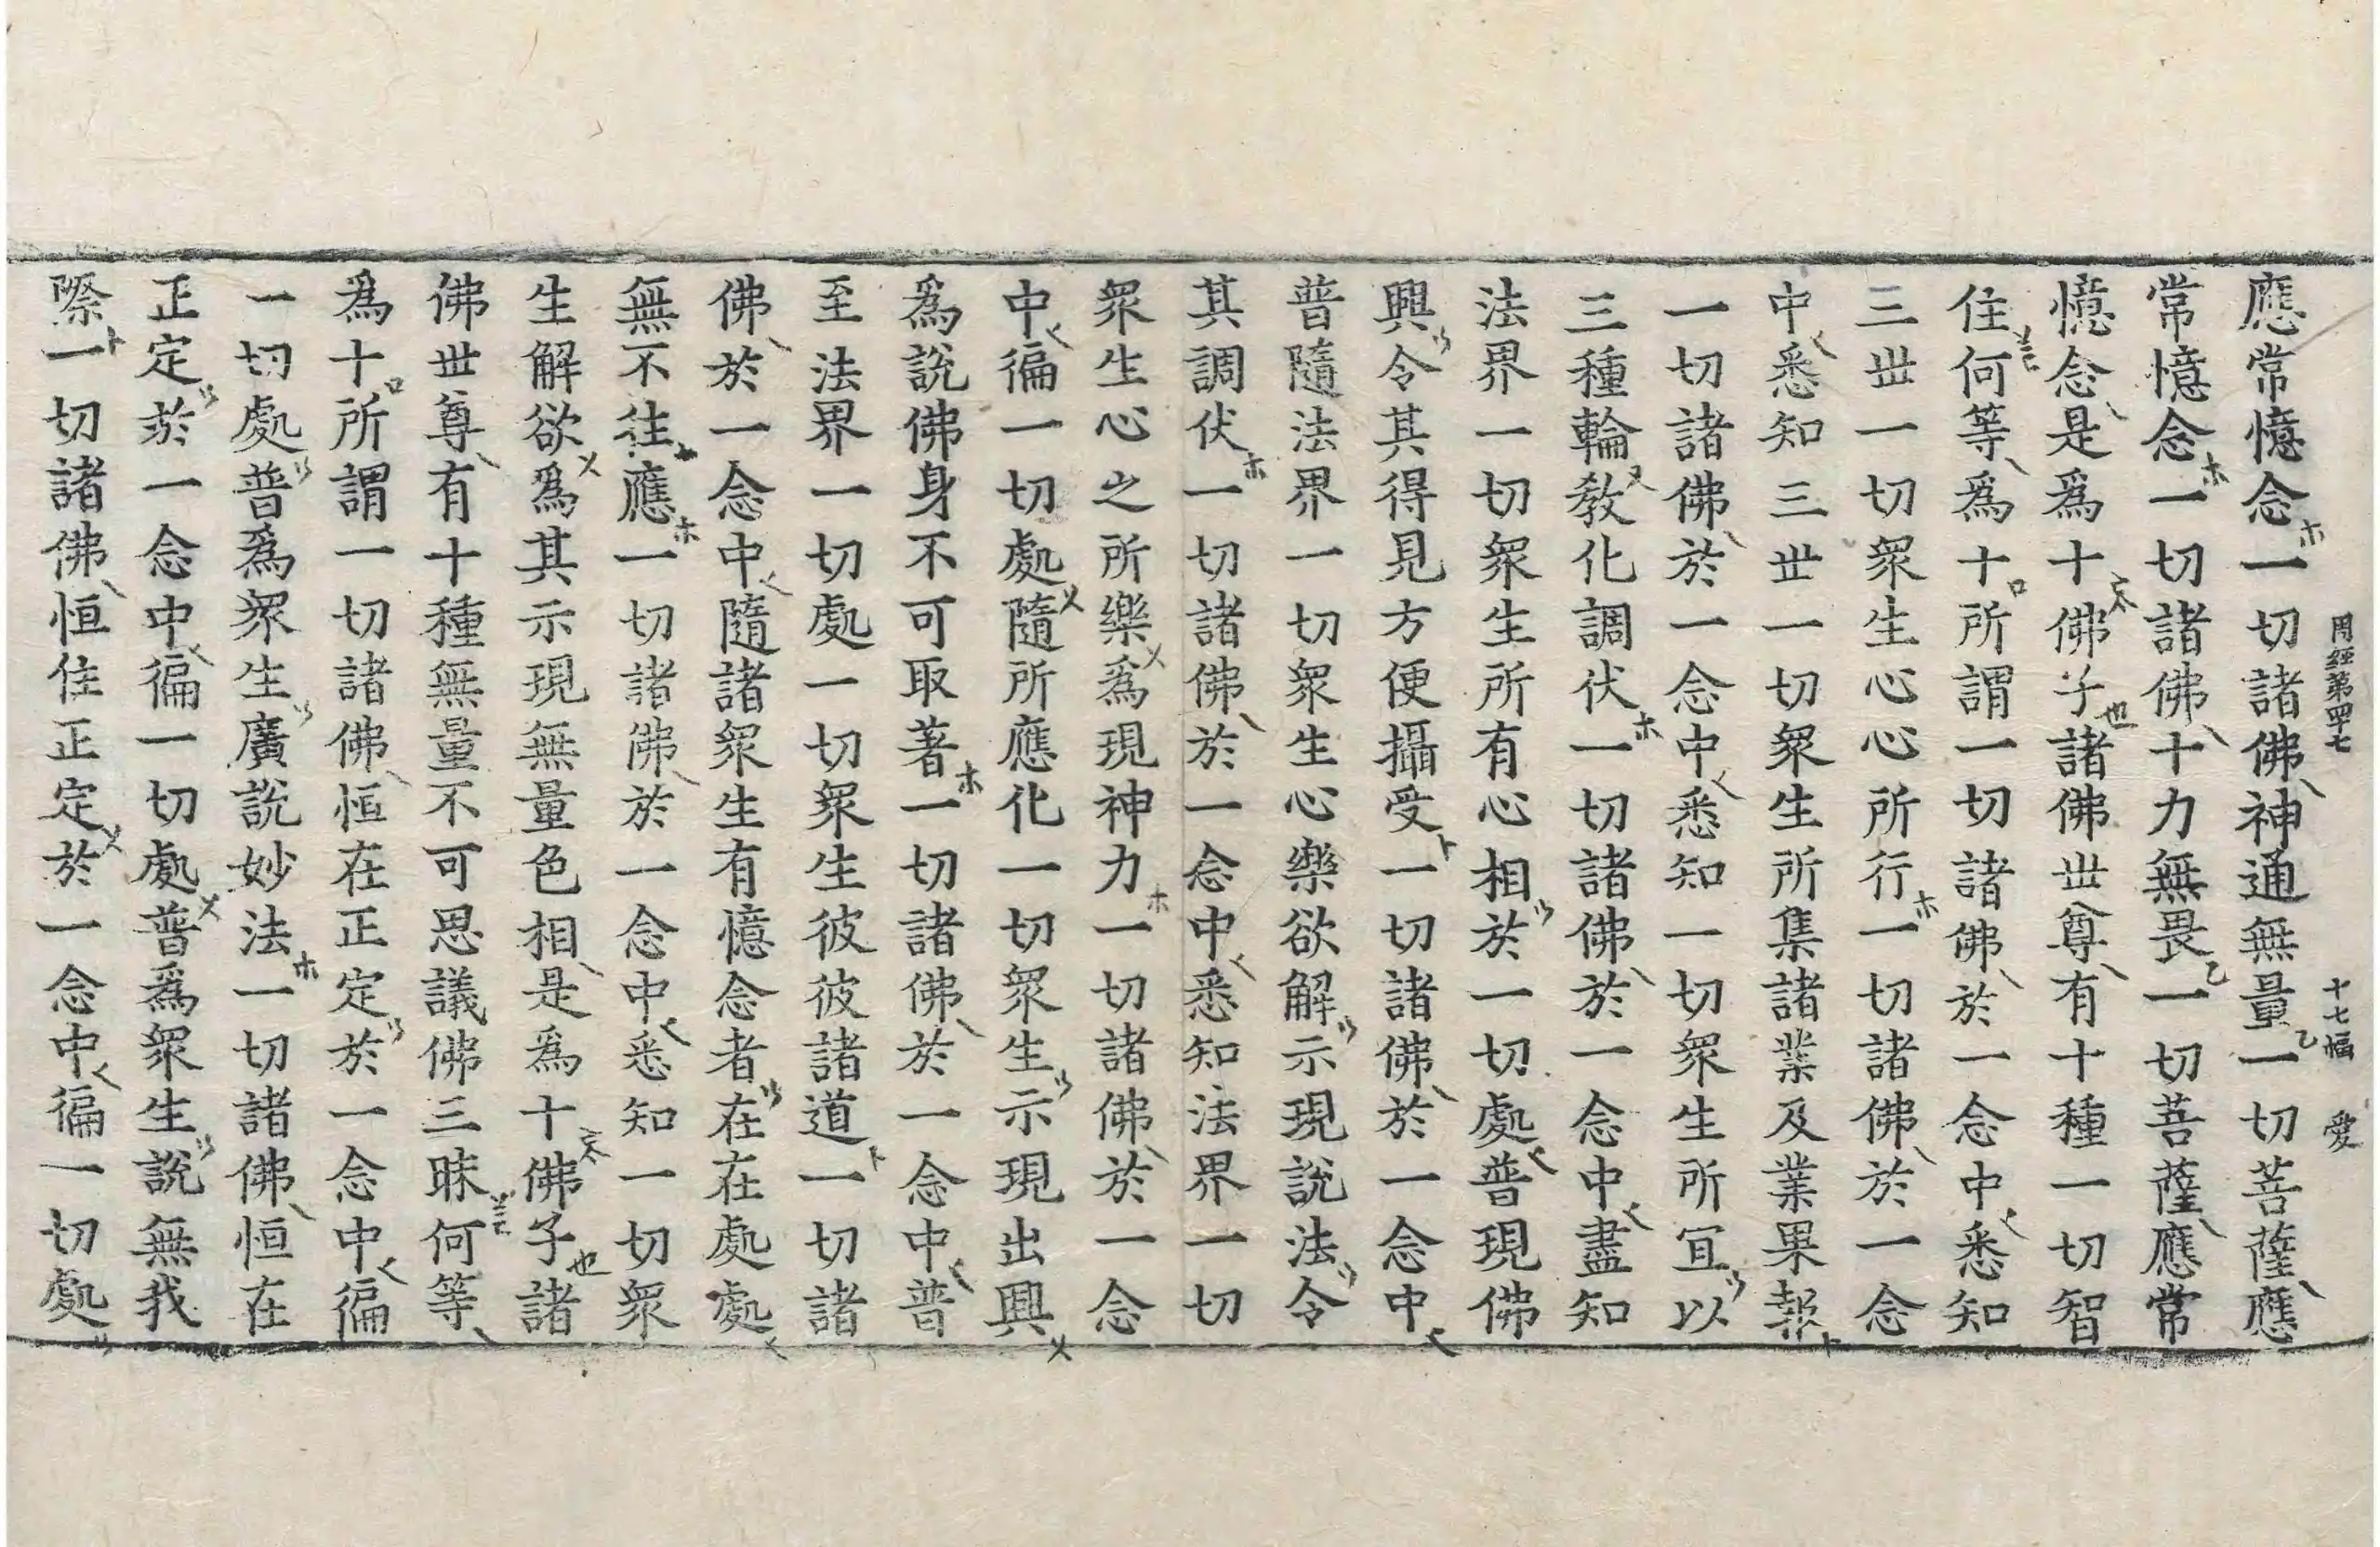 周經第四十七 十七幅 愛
應常憶念一切諸佛神通無量一切菩薩應
常憶念一切諸佛十力無畏一切菩薩應常
憶念是爲十佛子諸佛世尊有十種一切智
住何等爲十所謂一切諸佛於一念中悉知
三世一切衆生心心所行一切諸佛於一念
中悉知三世一切衆生所集諸業及業果報
一切諸佛於一念中悉知一切衆生所宜以
三種輪教化調伏一切諸佛於一念中盡知
法界一切衆生所有心相於一切處普現佛
興令其得見方便攝受一切諸佛於一念中
普隨法界一切衆生心樂欲解示現說法令
其調伏一切諸佛於一念中悉知法界一切
衆生心之所樂爲現神力一切諸佛於一念
中徧一切處隨所應化一切衆生示現出興
爲說佛身不可取著一切諸佛於一念中普
至法界一切處一切衆生彼彼諸道一切諸
佛於一念中隨諸衆生有憶念者在在處處
無不往應一切諸佛於一念中悉知一切衆
生解欲爲其示現無量色相是爲十佛子諸
佛世尊有十種無量不可思議佛三昧何等
爲十所謂一切諸佛恒在正定於一念中徧
一切處普爲衆生廣說妙法一切諸佛恒在
正定於一念中徧一切處普爲衆生說無我
際一切諸佛恒住正定於一念中徧一切處